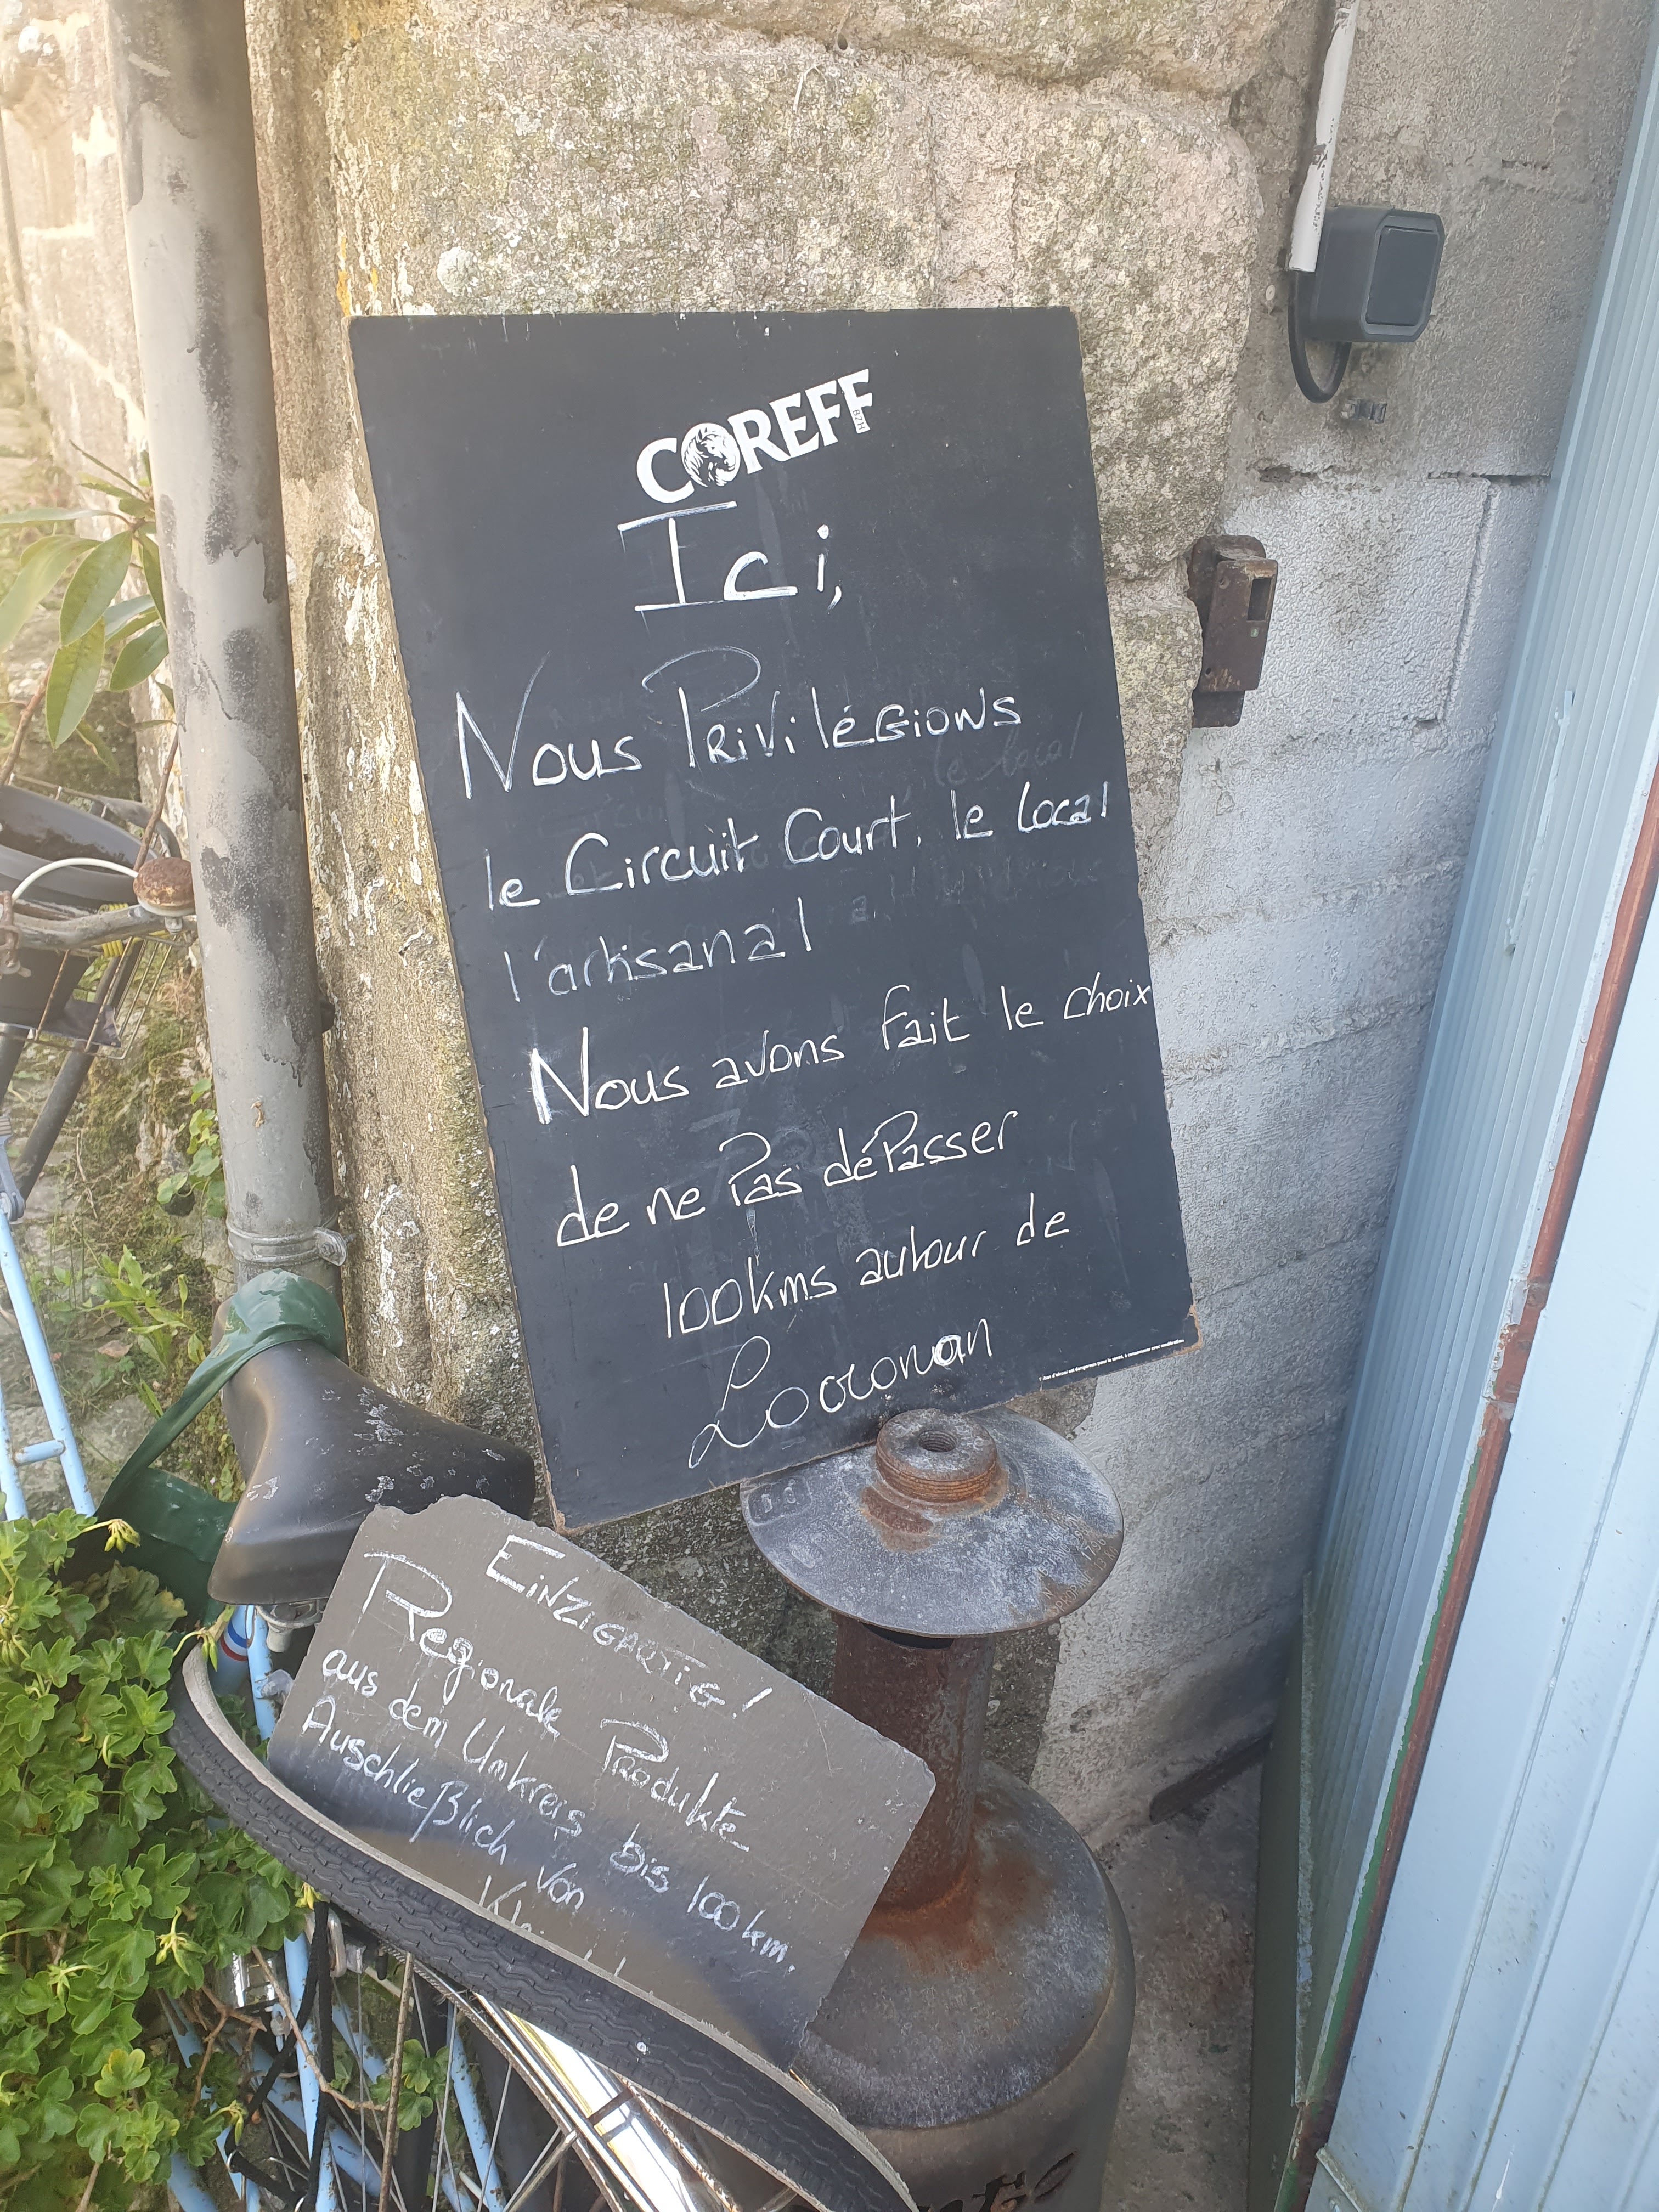 COREFF
BZH
Ici,
Nous Privilégions
le Circuit Court, le local
l'artisanal
Nous avons fait le choix
de ne Pas déPasser
100kms autour de
Locronan
EiNZIGARTiG!
Regionale PRodukte
aus dem Umkreis bis 100km.
Auschließlich von